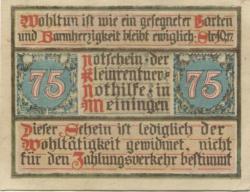 Wohltun ist wie ein gesegneter Garten
und Barmherzigkeit bleibt ewiglich
75 Notschein der 75
Kleinrentner-
Nothilfe in
Meiningen
Dieser Schein ist lediglich der
Wohltätigkeit gewidmet, nicht
für den Zahlungsverkehr bestimmt